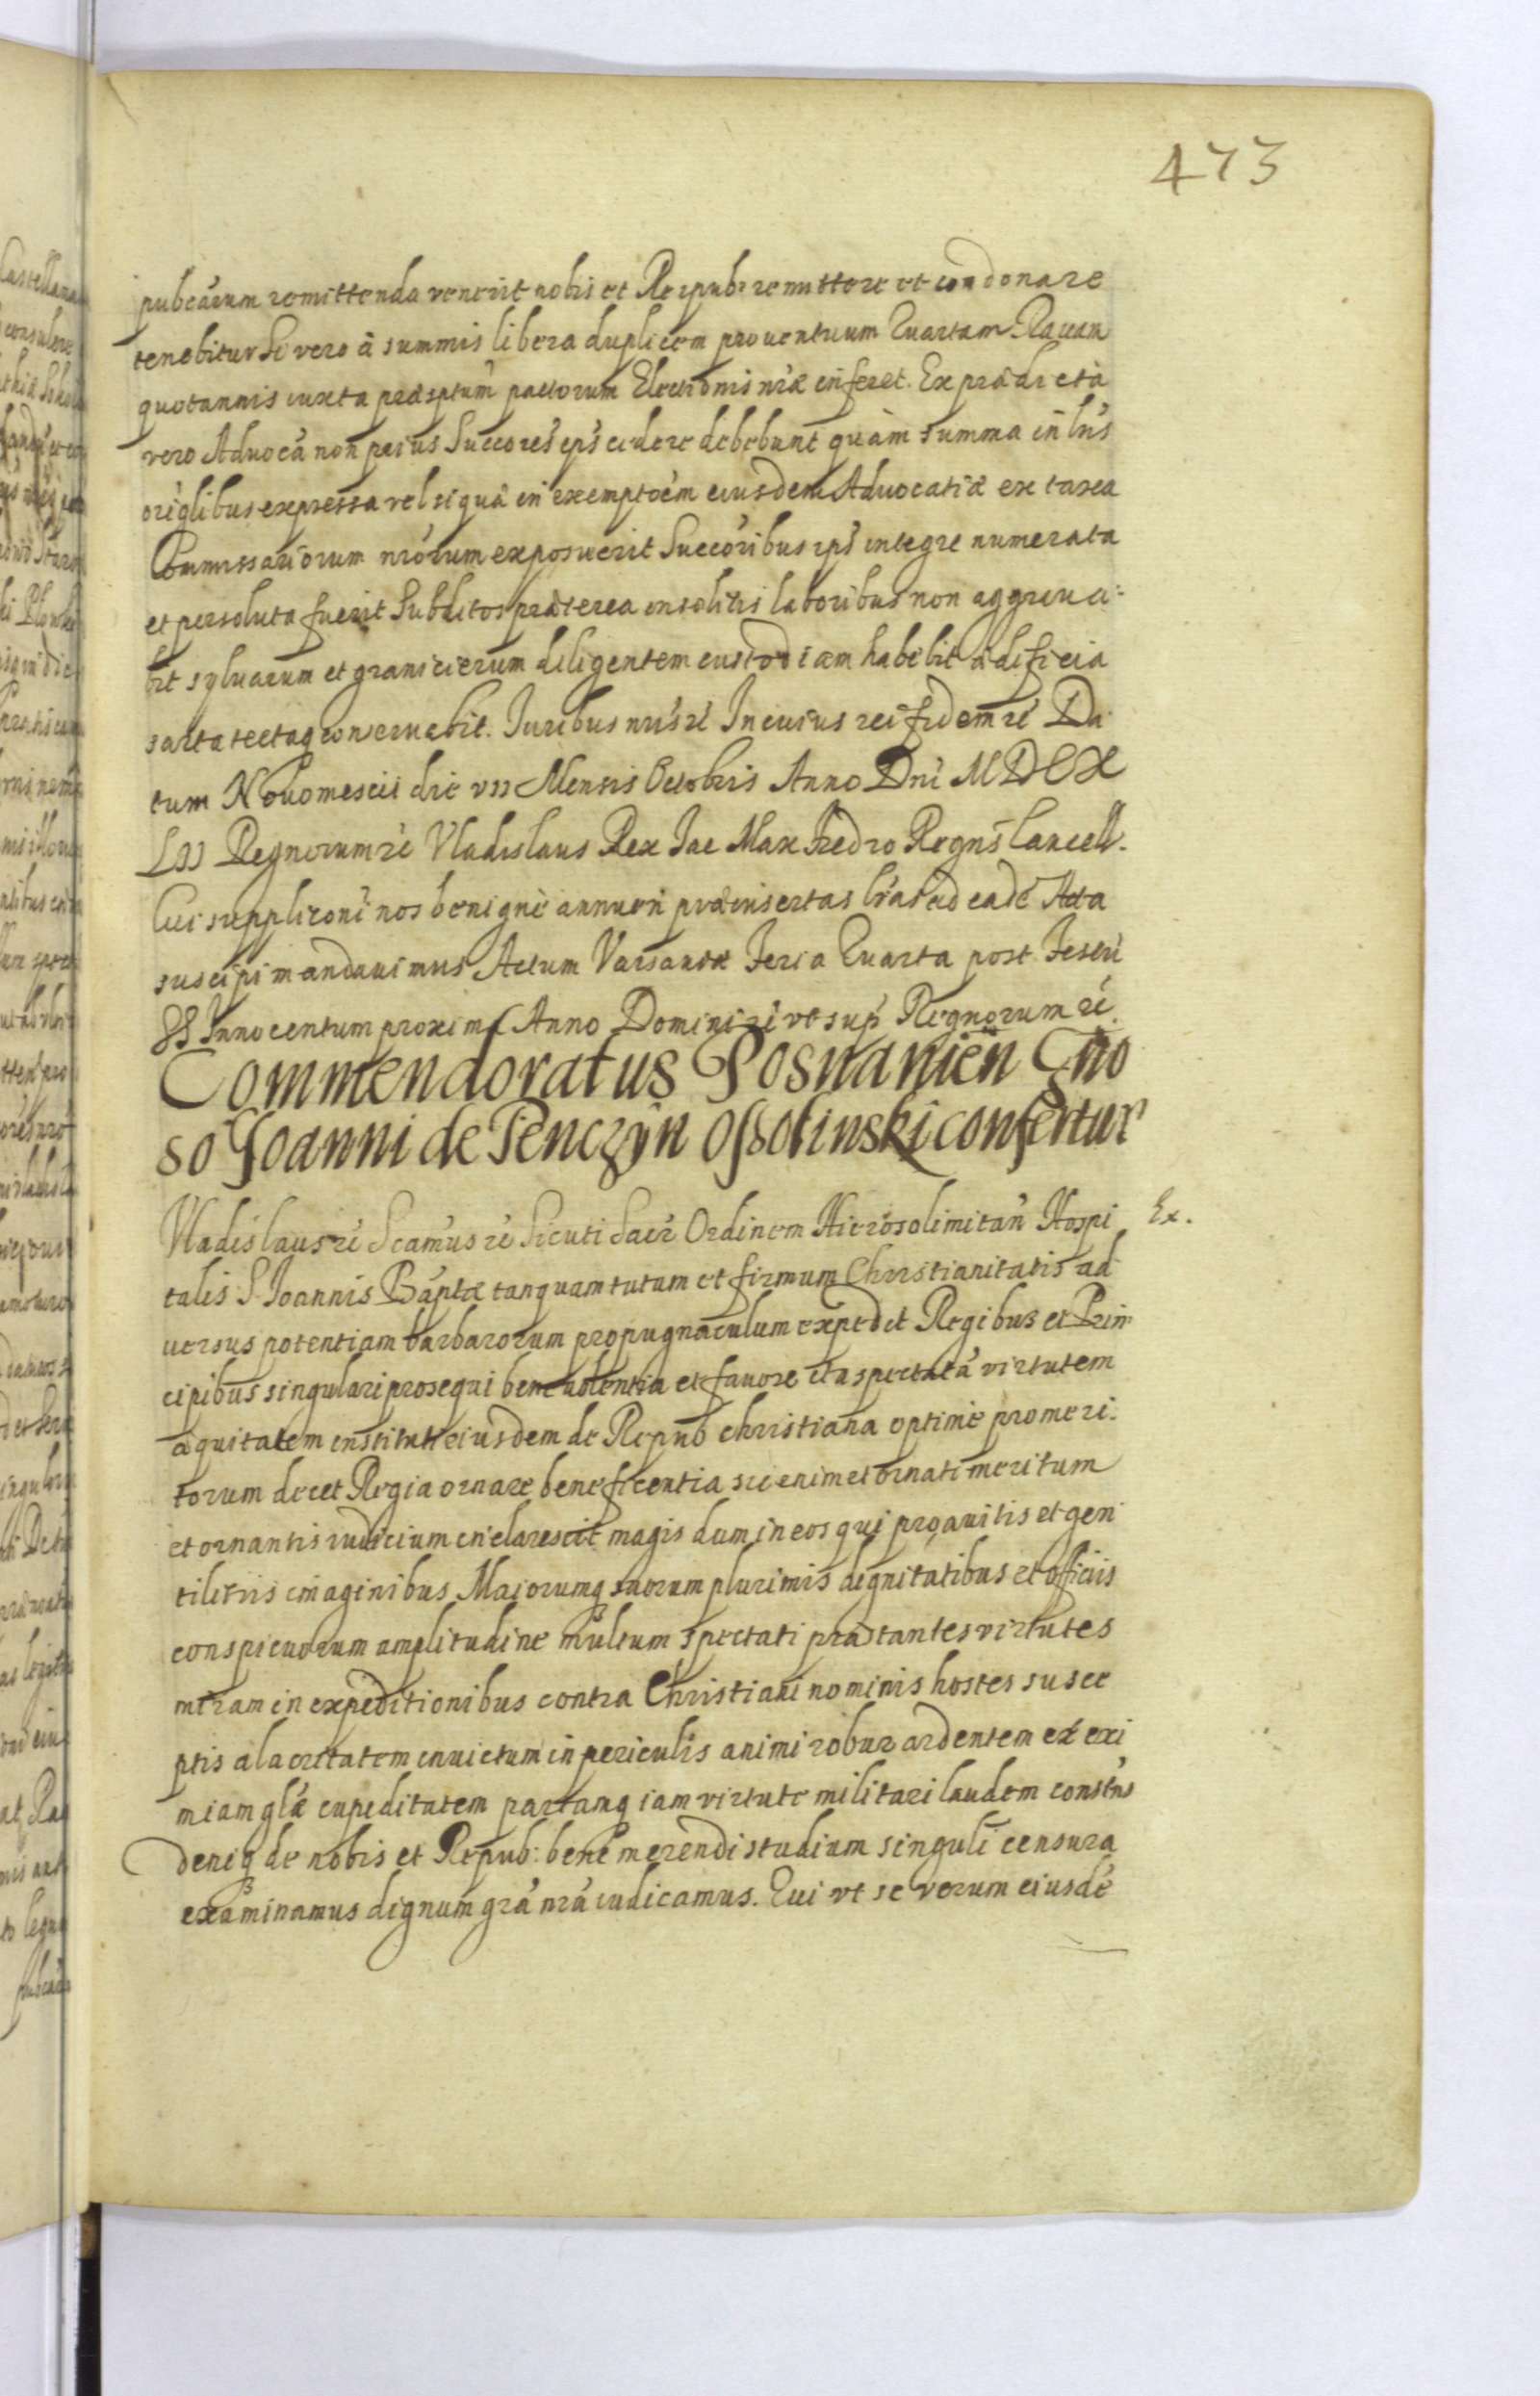 473
pubcārum remittenda venerit nobis et Reipub: remittere et condonare
tenebitur Si vero à summis libera duplicem proventuum Quartam Ravam
quotannis iuxta præsptum pactorum Electionis nræ inferet. Ex prædicta
vero Advocā non prius Succores eps cedere debebunt quàm summa in lris
origlibus expressa vel si quà in exemptoem eiusdem Advocatiæ ex taxa
Commissariorum nrorum exposuerit Successoribus ips integre numerata
et persoluta fuerit Subditos præterea insolitis laboribus non aggrava-
bit sylvarum et granicierum diligentem custodiam habebit ædificia
sarta tectaq conservabit. Iuribus nris re In cuius rei fidem re Da
tum Novomescii die VII Mensis Octobris Anno Dni MDCX
LII Regnorum re Vladislaus Rex Iac Max Fredro Regns Cancell.
Cui suppliconi nos benigne annuen præinsertas lras ad eadē Acta
suscipi mandavimus Actum Varsaviæ Feria Quarta post Festū
SS Innocentum proxima Anno Domini re ut sup Regnorum re.
Commendoratus Posnanien Gno
so Ioanni de Tenczyn Ossolinski confertur
Vladislaus re Scamus re Sicuti Sacr Ordinem Hierosolimitan Hospi Ex.
talis S. Ioannis Baptæ tanquam tutum et firmum Christianitatis ad
versus potentiam barbarorum propugnaculum expedit Regibus et Prin
cipibus singulari prosequi benevolentia et favore ita spectatā virtutem
æquitatem instituti eiusdem de Repub christiana optime promeri-
torum decet Regia ornare beneficentia sic enim et ornati meritum
et ornantis iudicium enclarescit magis dum in eos qui proavitis et gen
tilitiis imaginibus Maiorumq suorum plurimis dignitatibus et officiis
conspicuorum amplitudine multum spectati præstantes virtutes
miram in expeditionibus contra Christiani nominis hostes susce
ptis alacritatem invictum in periculis animi robur ardentem et exi
miam glæ cupiditatem partamq iam virtute militari laudem constns
deniq de nobis et Repub: bene merendi studium singuli censura
examinamus dignum grā nrā iudicamus. Qui ut se verum eiusdē